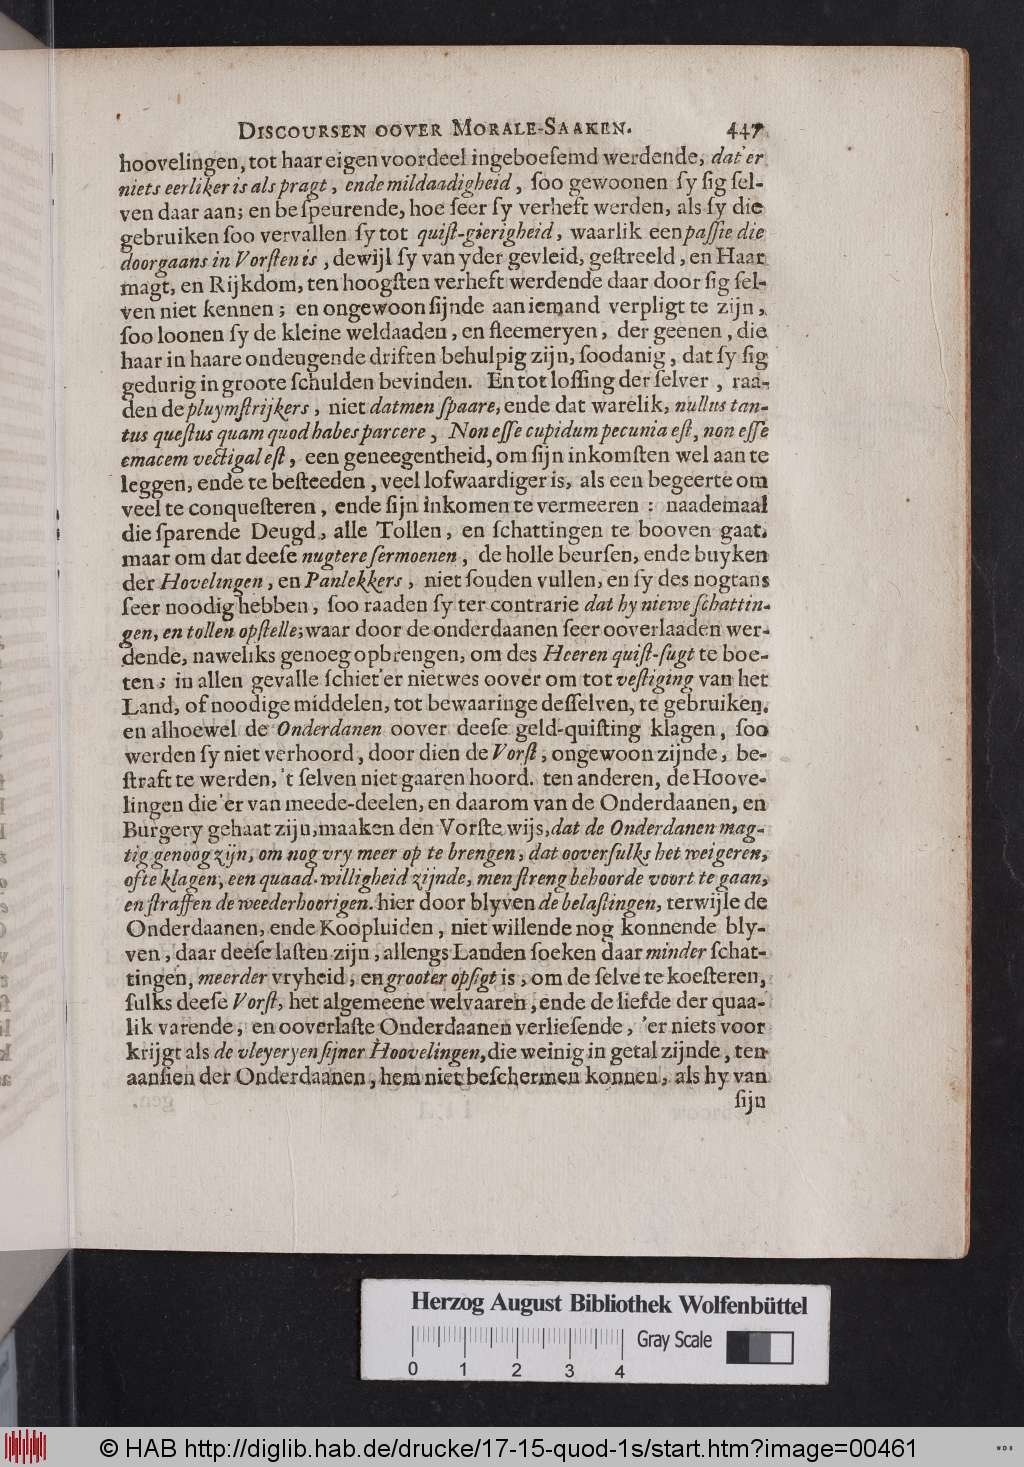 DISCOURSEN OOVER MORALE-SAAKEN. 447
hoovelingen, tot haar eigen voordeel ingeboeſemd werdende, dat'er
niets eerliker is als pragt, ende mildaadigheid, ſoo gewoonen ſy ſig ſel-
ven daar aan; en beſpeurende, hoe ſeer ſy verheft werden, als ſy die
gebruiken ſoo vervallen ſy tot quiſt-gierigheid, waarlik een paſſie die
doorgaans in Vorſten is, dewijl ſy van yder gevleid, geſtreeld, en Haar
magt, en Rijkdom, ten hoogſten verheft werdende daar door ſig ſel-
ven niet kennen; en ongewoon ſijnde aan iemand verpligt te zijn,
ſoo loonen ſy de kleine weldaaden, en fleemeryen, der geenen, die
haar in haare ondeugende driften behulpig zijn, ſoodanig, dat ſy ſig
gedurig in groote ſchulden bevinden. En tot loſſing der ſelver, raa-
den de pluymſtrijkers, niet datmen ſpaare, ende dat warelik, nullus tan-
tus queſtus quam quod habes parcere, Non eſſe cupidum pecunia eſt, non eſſe
emacem vectigal eſt, een geneegentheid, om ſijn inkomſten wel aan te
leggen, ende te beſteeden, veel lofwaardiger is, als een begeerte om
veel te conqueſteren, ende ſijn inkomen te vermeeren: naademaal
die ſparende Deugd, alle Tollen, en ſchattingen te booven gaat.
maar om dat deeſe nugtere ſermoenen, de holle beurſen, ende buyken
der Hovelingen, en Panlekkers, niet ſouden vullen, en ſy des nogtans
ſeer noodig hebben, ſoo raaden ſy ter contrarie dat hy niewe ſchattin-
gen, en tollen opſtelle; waar door de onderdaanen ſeer ooverlaaden wer-
dende, naweliks genoeg opbrengen, om des Heeren quiſt-ſugt te boe-
ten; in allen gevalle ſchiet'er nietwes oover om tot veſtiging van het
Land, of noodige middelen, tot bewaaringe deſſelven, te gebruiken.
en alhoewel de Onderdanen oover deeſe geld-quiſting klagen, ſoo
werden ſy niet verhoord, door dien de Vorſt, ongewoon zijnde, be-
ſtraft te werden, 't ſelven niet gaaren hoord. ten anderen, de Hoove-
lingen die'er van meede-deelen, en daarom van de Onderdaanen, en
Burgery gehaat zijn, maaken den Vorſte wijs, dat de Onderdanen mag-
tig genoog zijn, om nog vry meer op te brengen, dat ooverſulks het weigeren,
ofte klagen, een quaad-willigheid zijnde, men ſtreng behoorde voort te gaan,
en ſtraffen de weederhoorigen. hier door blyven de belaſtingen, terwijle de
Onderdaanen, ende Koopluiden, niet willende nog konnende bly-
ven, daar deeſe laſten zijn, allengs Landen ſoeken daar minder ſchat-
tingen, meerder vryheid, en grooter opſigt is, om de ſelve te koeſteren,
ſulks deeſe Vorſt, het algemeene welvaaren, ende de liefde der quaa-
lik varende, en ooverlaſte Onderdaanen verlieſende, 'er niets voor
krijgt als de vleyeryen ſijner Hoovelingen, die weinig in getal zijnde, ten
aanſien der Onderdaanen, hem niet beſchermen konnen, als hy van
ſijn
Herzog August Bibliothek Wolfenbüttel
Gray Scale
0 1 2 3 4
© HAB http://diglib.hab.de/drucke/17-15-quod-1s/start.htm?image=00461